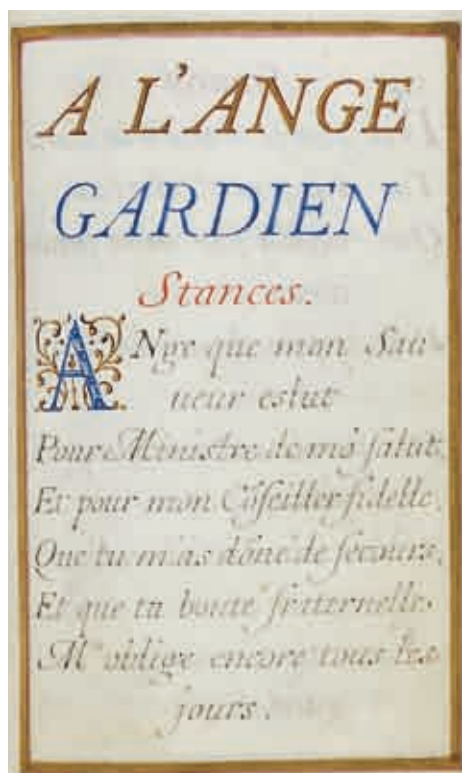 A L'ANGE
GARDIEN
Stances.
ANge que mon Sau-
ueur eslut
Pour Ministre de mō salut,
Et pour mon Cōseiller fidelle,
Que tu m'as dōné de secours,
Et que ta bonté fraternelle
M'oblige encore tous les
jours.